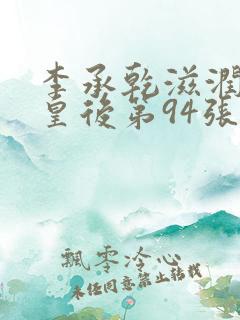 李承乾滋潤
皇後第94張
飄零冷心
未任同意禁止转载